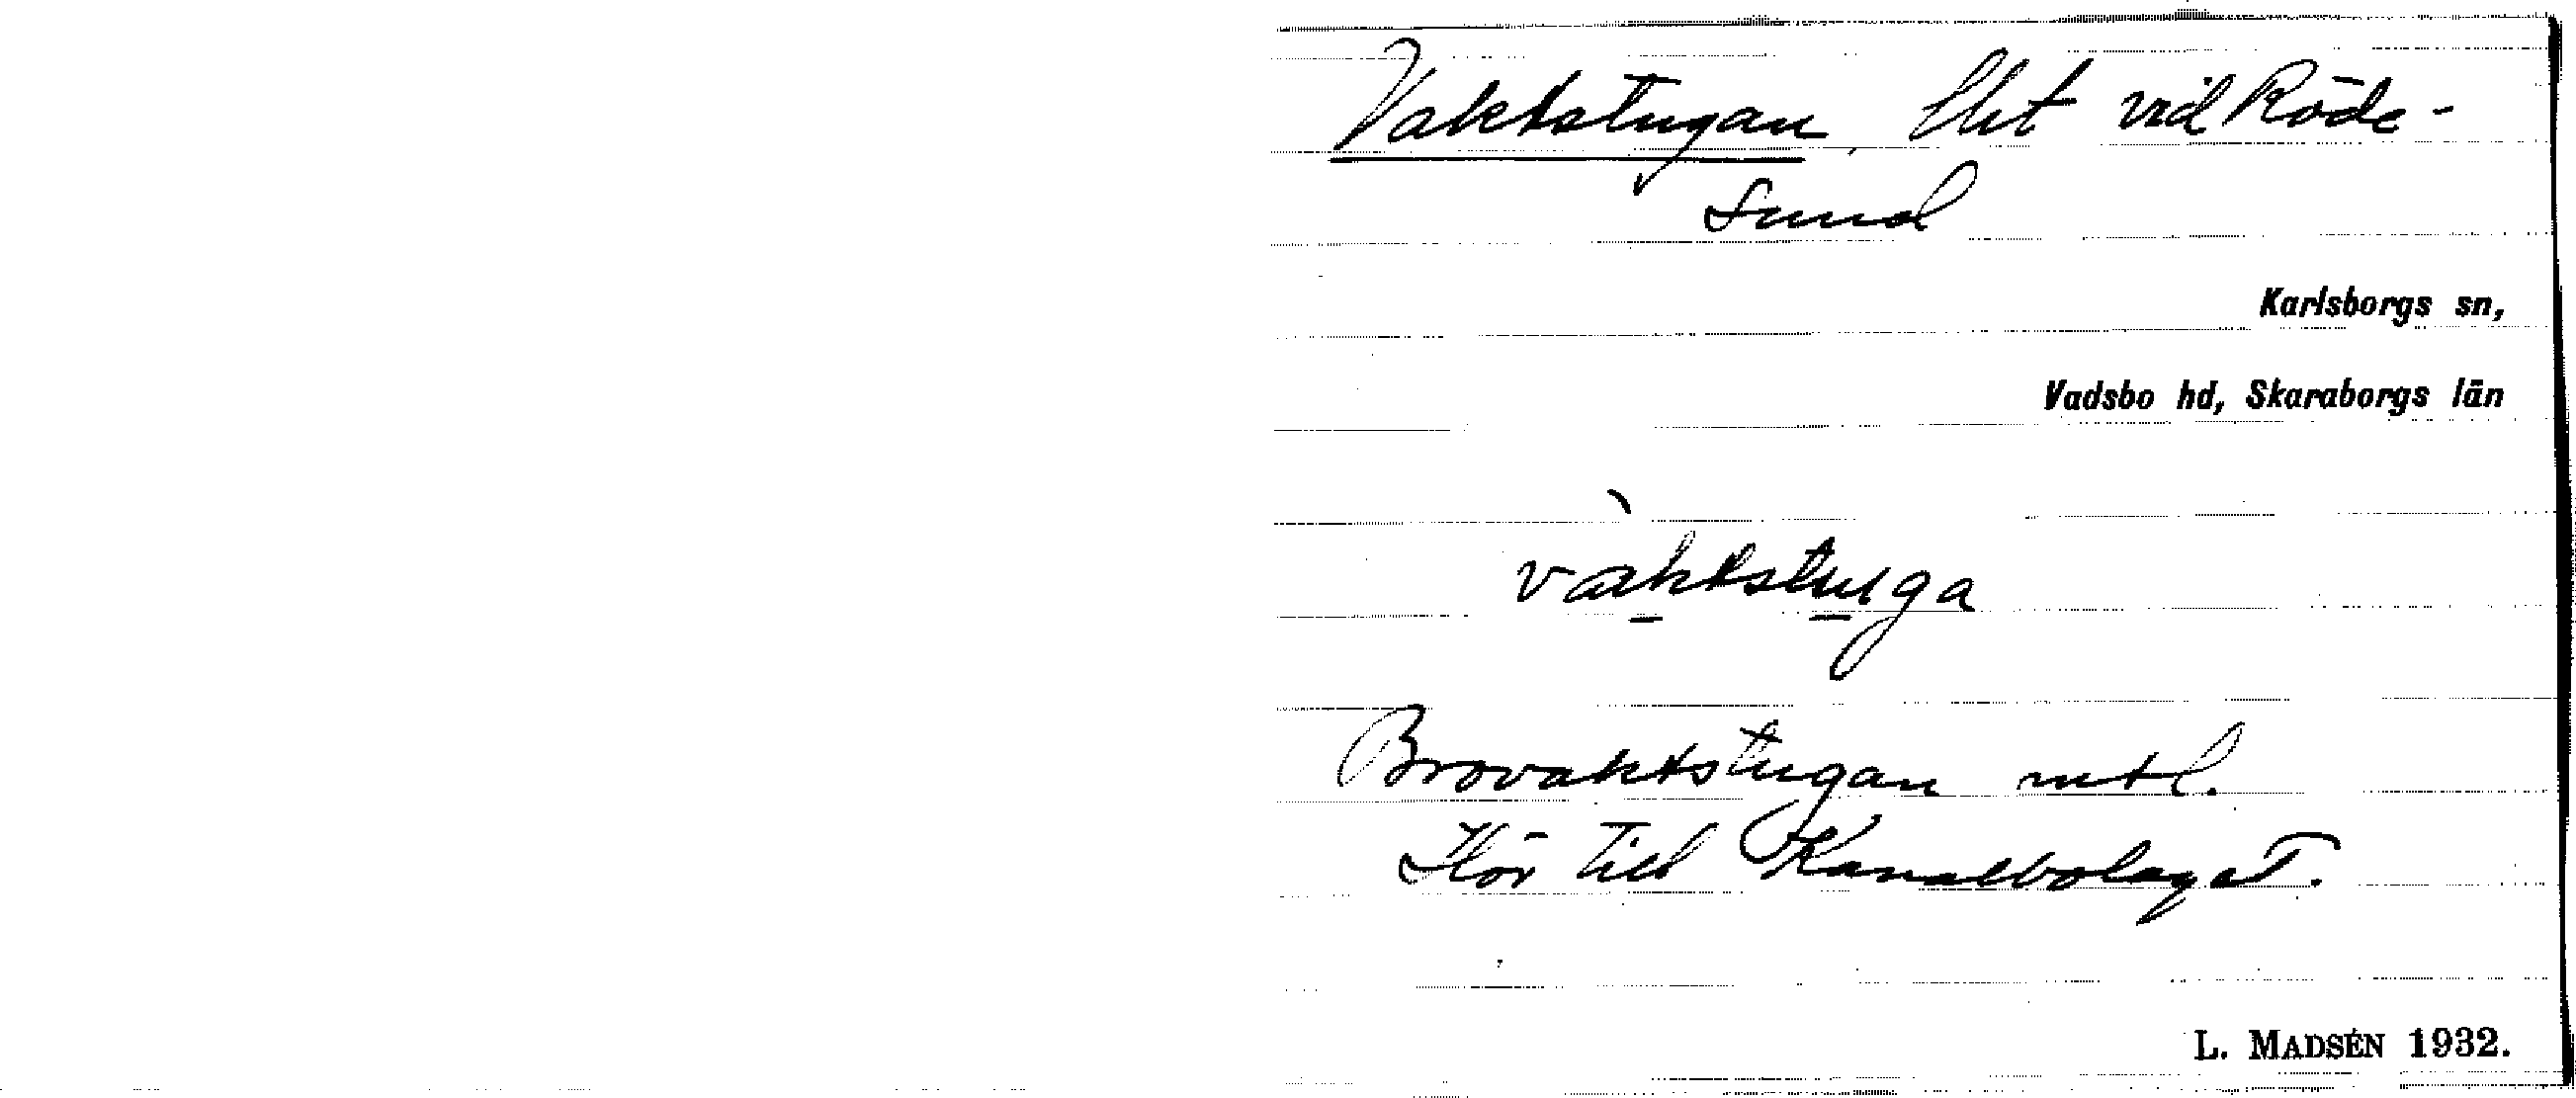 Vaktstugan, lht vid Röde-
sund
Karlsborgs sn,
Vadsbo hd, Skaraborgs län
vàktstuga
Brovaktstugan mtl.
Hör till Kanalbolaget.
L. MADSÉN 1932.